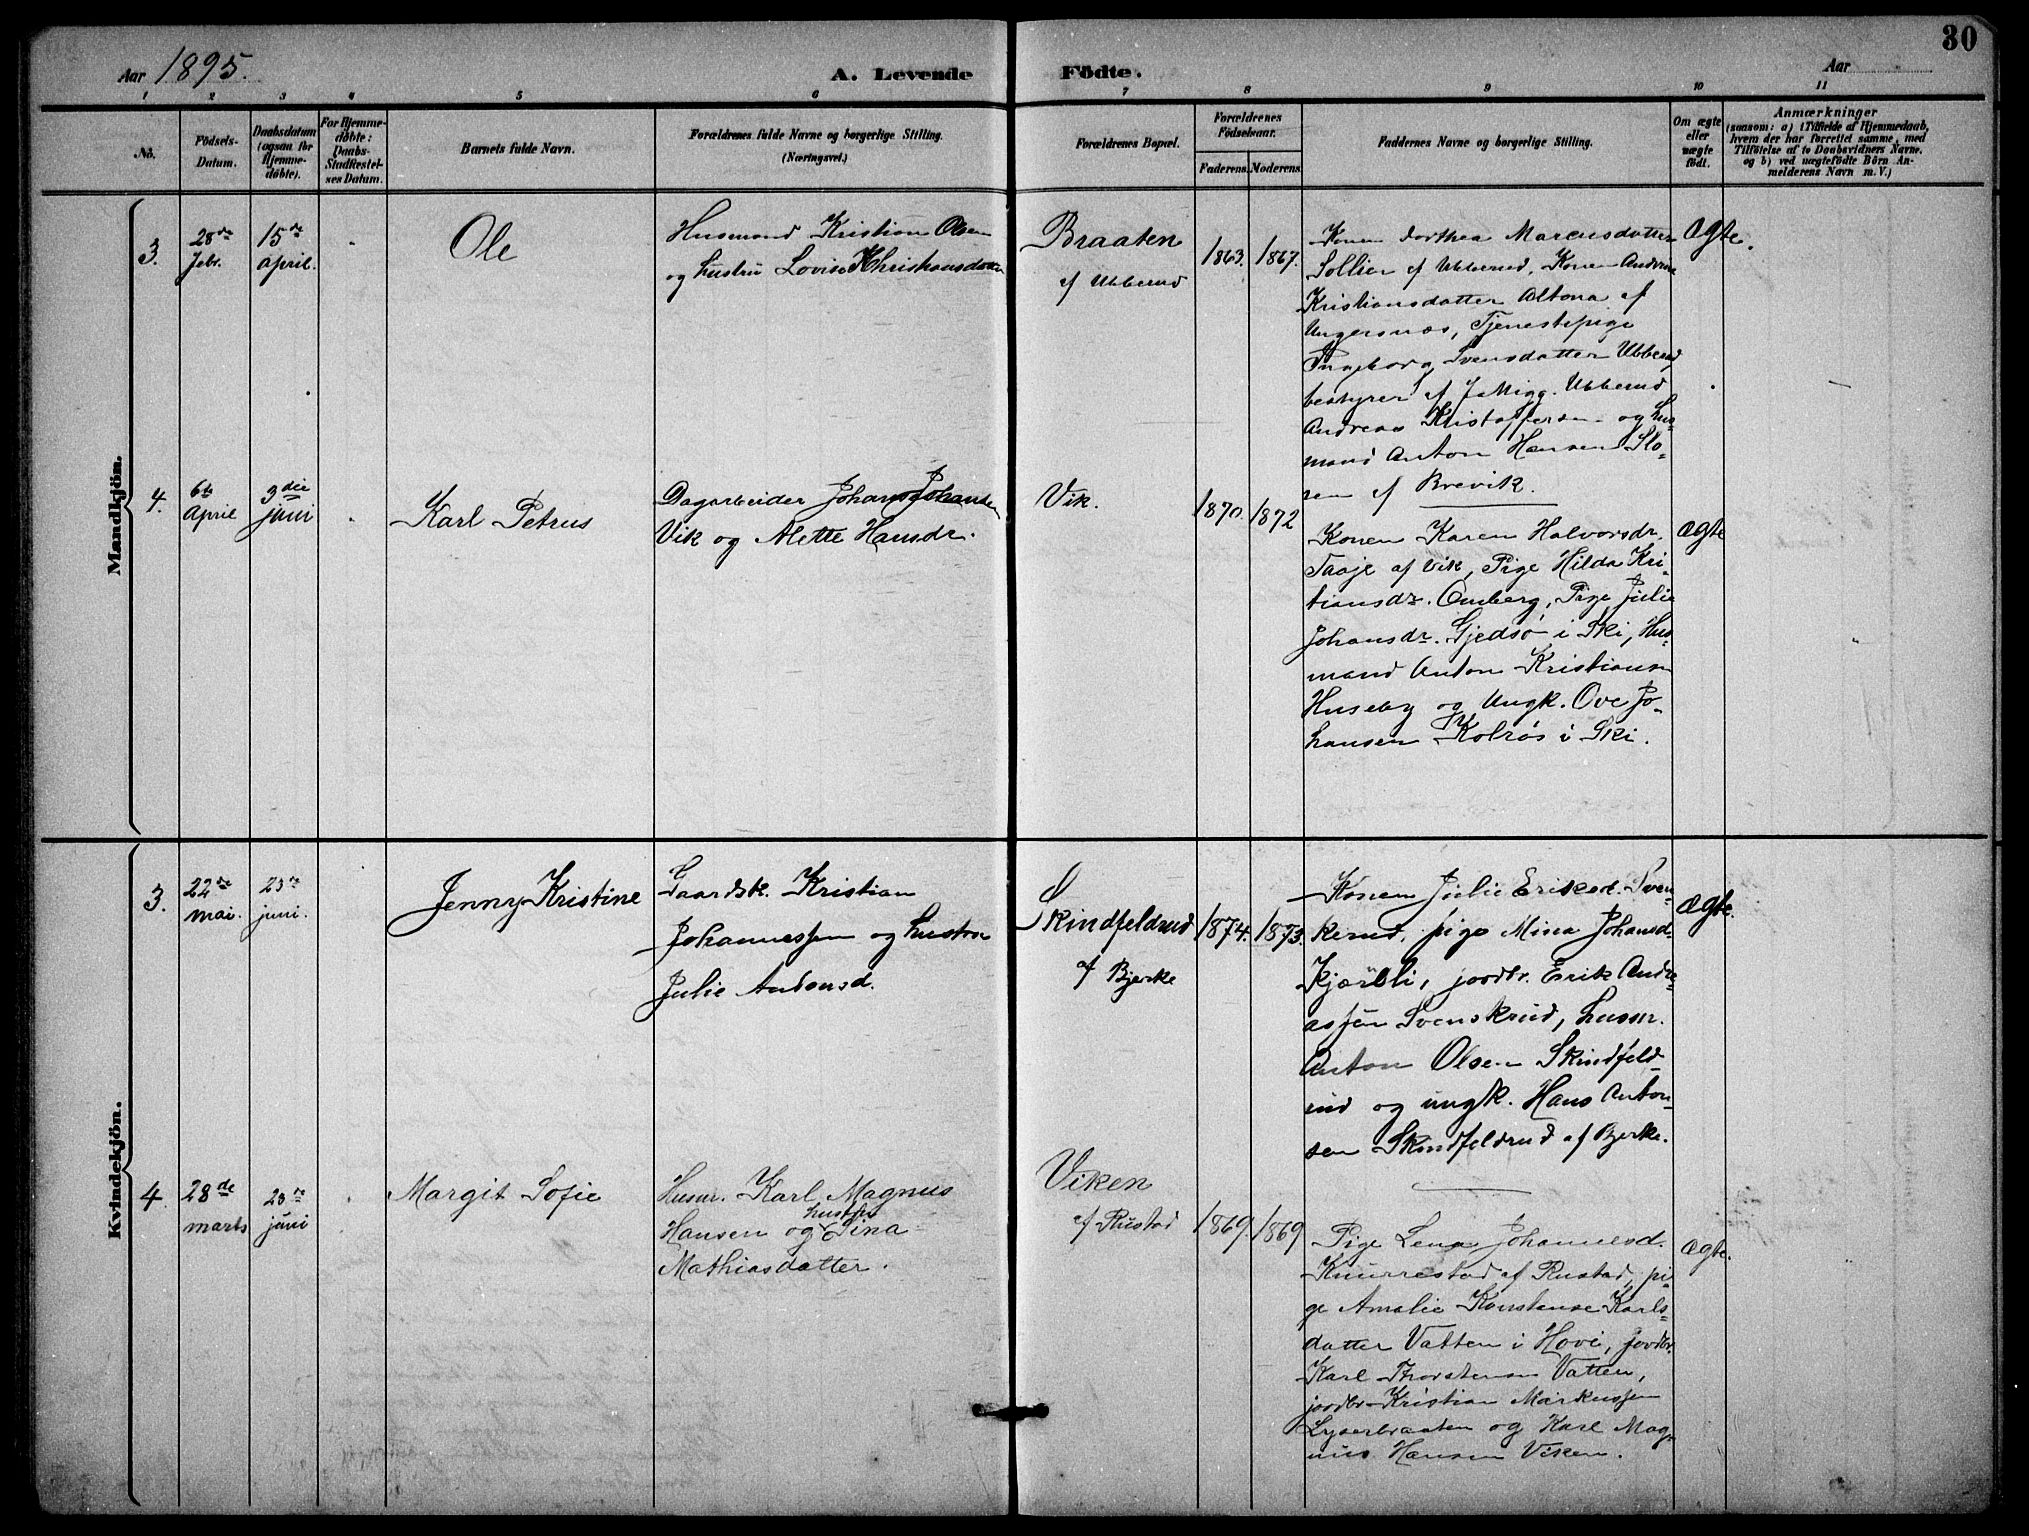 30
Aar 1895. A. Levende Födte. Aar
1 2 3 4 5 6 7 8 9 10 11
No.
Födsels-
Datum.
Daabsdatum
(ogsaa for
Hjemme-
döbte).
For Hjemme-
döbte:
Daabs-
Stadfæstel-
ses Datum.
Barnets fulde Navn.
Forældrenes fulde Navne og borgerlige Stilling.
(Næringsvei.)
Forældrenes Bopæl.
Forældrenes
Födselsaar.
Faderens. Moderens.
Faddernes Navne og borgerlige Stilling.
Om ægte
eller
uægte
født.
Anmærkninger
(saasom: a) i Tilfælde af Hjemmedaab,
hvem der har forrettet samme, med
Tilföielse af to Daabsvidners Navne.
og b) ved uægtefödte Börn An-
melderens Navn m. V.)
Mandkjön.
3.
28de
Febr.
15de
april.
Ole
Husmand Kristian Olsen
og hustru Lovise Khristiansdatter
Braaten
af Ubberud
1863. 1867.
Konen Dorthea Marcusdatter
Sollien af Ubberud, Konen Andrine
Kristiansdatter Altona af
Ungersnæs, Tjenestepige
Ingeborg Svensdatter Ubberud
bestyrer af Ubberud
Andreas Kristoffersen og hus-
mand Anton Hansen Slo-
ren af Brevik.
Ægte.
4.
6te
April
3die
juni
Karl Petrus
Dagarbeider Johans Johansen
Vik og Alette Hansdr.
Vik.
1870. 1872
Konen Karen Halvorsdr.
Taaje af Vik, Pige Hilda Kri-
tiansdr. Omberg, Pige Julie
Johansdr. Gjedsø i Ski, Hus-
mand Anton Kristiansen
Huseby og Ungk. Ove Jo-
hansen Kolrøs i Ski.
Ægte
Kvindekjön.
3.
22de
mai.
23de
juni.
Jenny Kristine
Gaardsk. Kristian
Johannessen og hustru
Julie Antonsd.
Skindfeldrud
af Bjerke
1874. 1873.
Konen Julie Eriksd. Sven-
kerud, pige Mina Johansd.
Kjærbli, jordbr. Erik Andre-
assen Svenskrud, husm.
Anton Olsen Skindfeld-
rud og ungk. Hans Anton-
sen Skindfeldrud af Bjerke.
Ægte.
4
28de
marts
23de
juni
Margit Sofie
Husm. Karl Magnus
Hansen og hustru Tina
Mathiasdatter.
Viken
af Rustad
1869. 1869
Pige Lena Johannesd.
Knurrestad af Rustad, pi-
ge Amalie Konstanse Karls-
datter Vatten i Hovi, jordbr.
Karl Thorstensen Vatten,
jordbr. Kristian Markussen
Lyserbraaten og Karl Mag-
nus Hansen Viken.
Ægte.